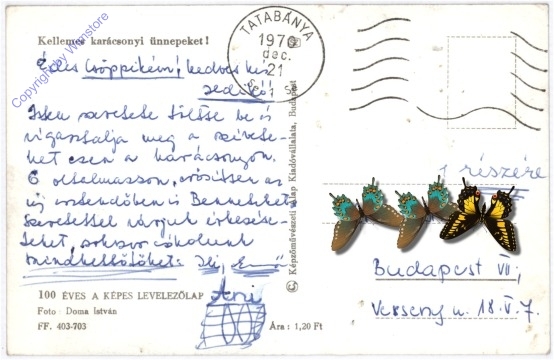 Kellemes karácsonyi ünnepeket!
Édes Csöppikém! kedves kis
TATABÁNYA
1970
dec.
21
Isten szeretete töltse be és
vigasztalja meg a szívete-
ket ezen a karácsonyon.
Ő oltalmazzon, erősítsen az
új esztendőben is Benneteket
Szeretettel várjuk érkezése-
teket, sokszor csókolunk
mindkettőtöket: Ili, Ernő
Ani
100 ÉVES A KÉPES LEVELEZŐLAP
Foto: Doma István
FF. 403-703
Ára: 1,20 Ft
Képzőművészeti Alap Kiadóvállalata, Budapest
részére
Budapest VII.,
Verseny u. 18. V. 7.
Copyright by Wanstore